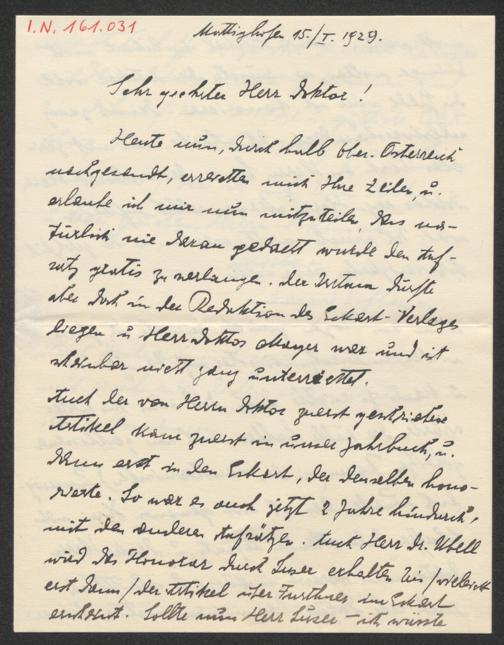 I.N. 161.031
Mattighofen 15./I. 1929.
Sehr geehrter Herr Doktor!
Heute nun, durch halb Ober-Österreich
nachgesandt, erreichten mich Ihre Zeilen, u.
erlaube ich mir nun mitzuteilen, dass na-
türlich nie daran gedacht wurde den Auf-
satz gratis zu verlangen. Der Irrtum dürfte
aber doch in der Redaktion des Eckart-Verlages
liegen u Herr Doktor Mayer war und ist
scheinbar nicht ganz unterrichtet.
Auch der von Herrn Doktor zuerst geschriebene
Artikel kam zuerst in unser Jahrbuch, u.
dann erst in den Eckart, der denselben hono-
rierte. So war es auch jetzt 2 Jahre hindurch,
mit den anderen Aufsätzen. Auch Herr Dr. Ubell
wird das Honorar durch Luser erhalten bis/vielleicht
erst dann/der Artikel über Furthner im Eckart
erscheint. Sollte nun Herr Luser – ich wüsste